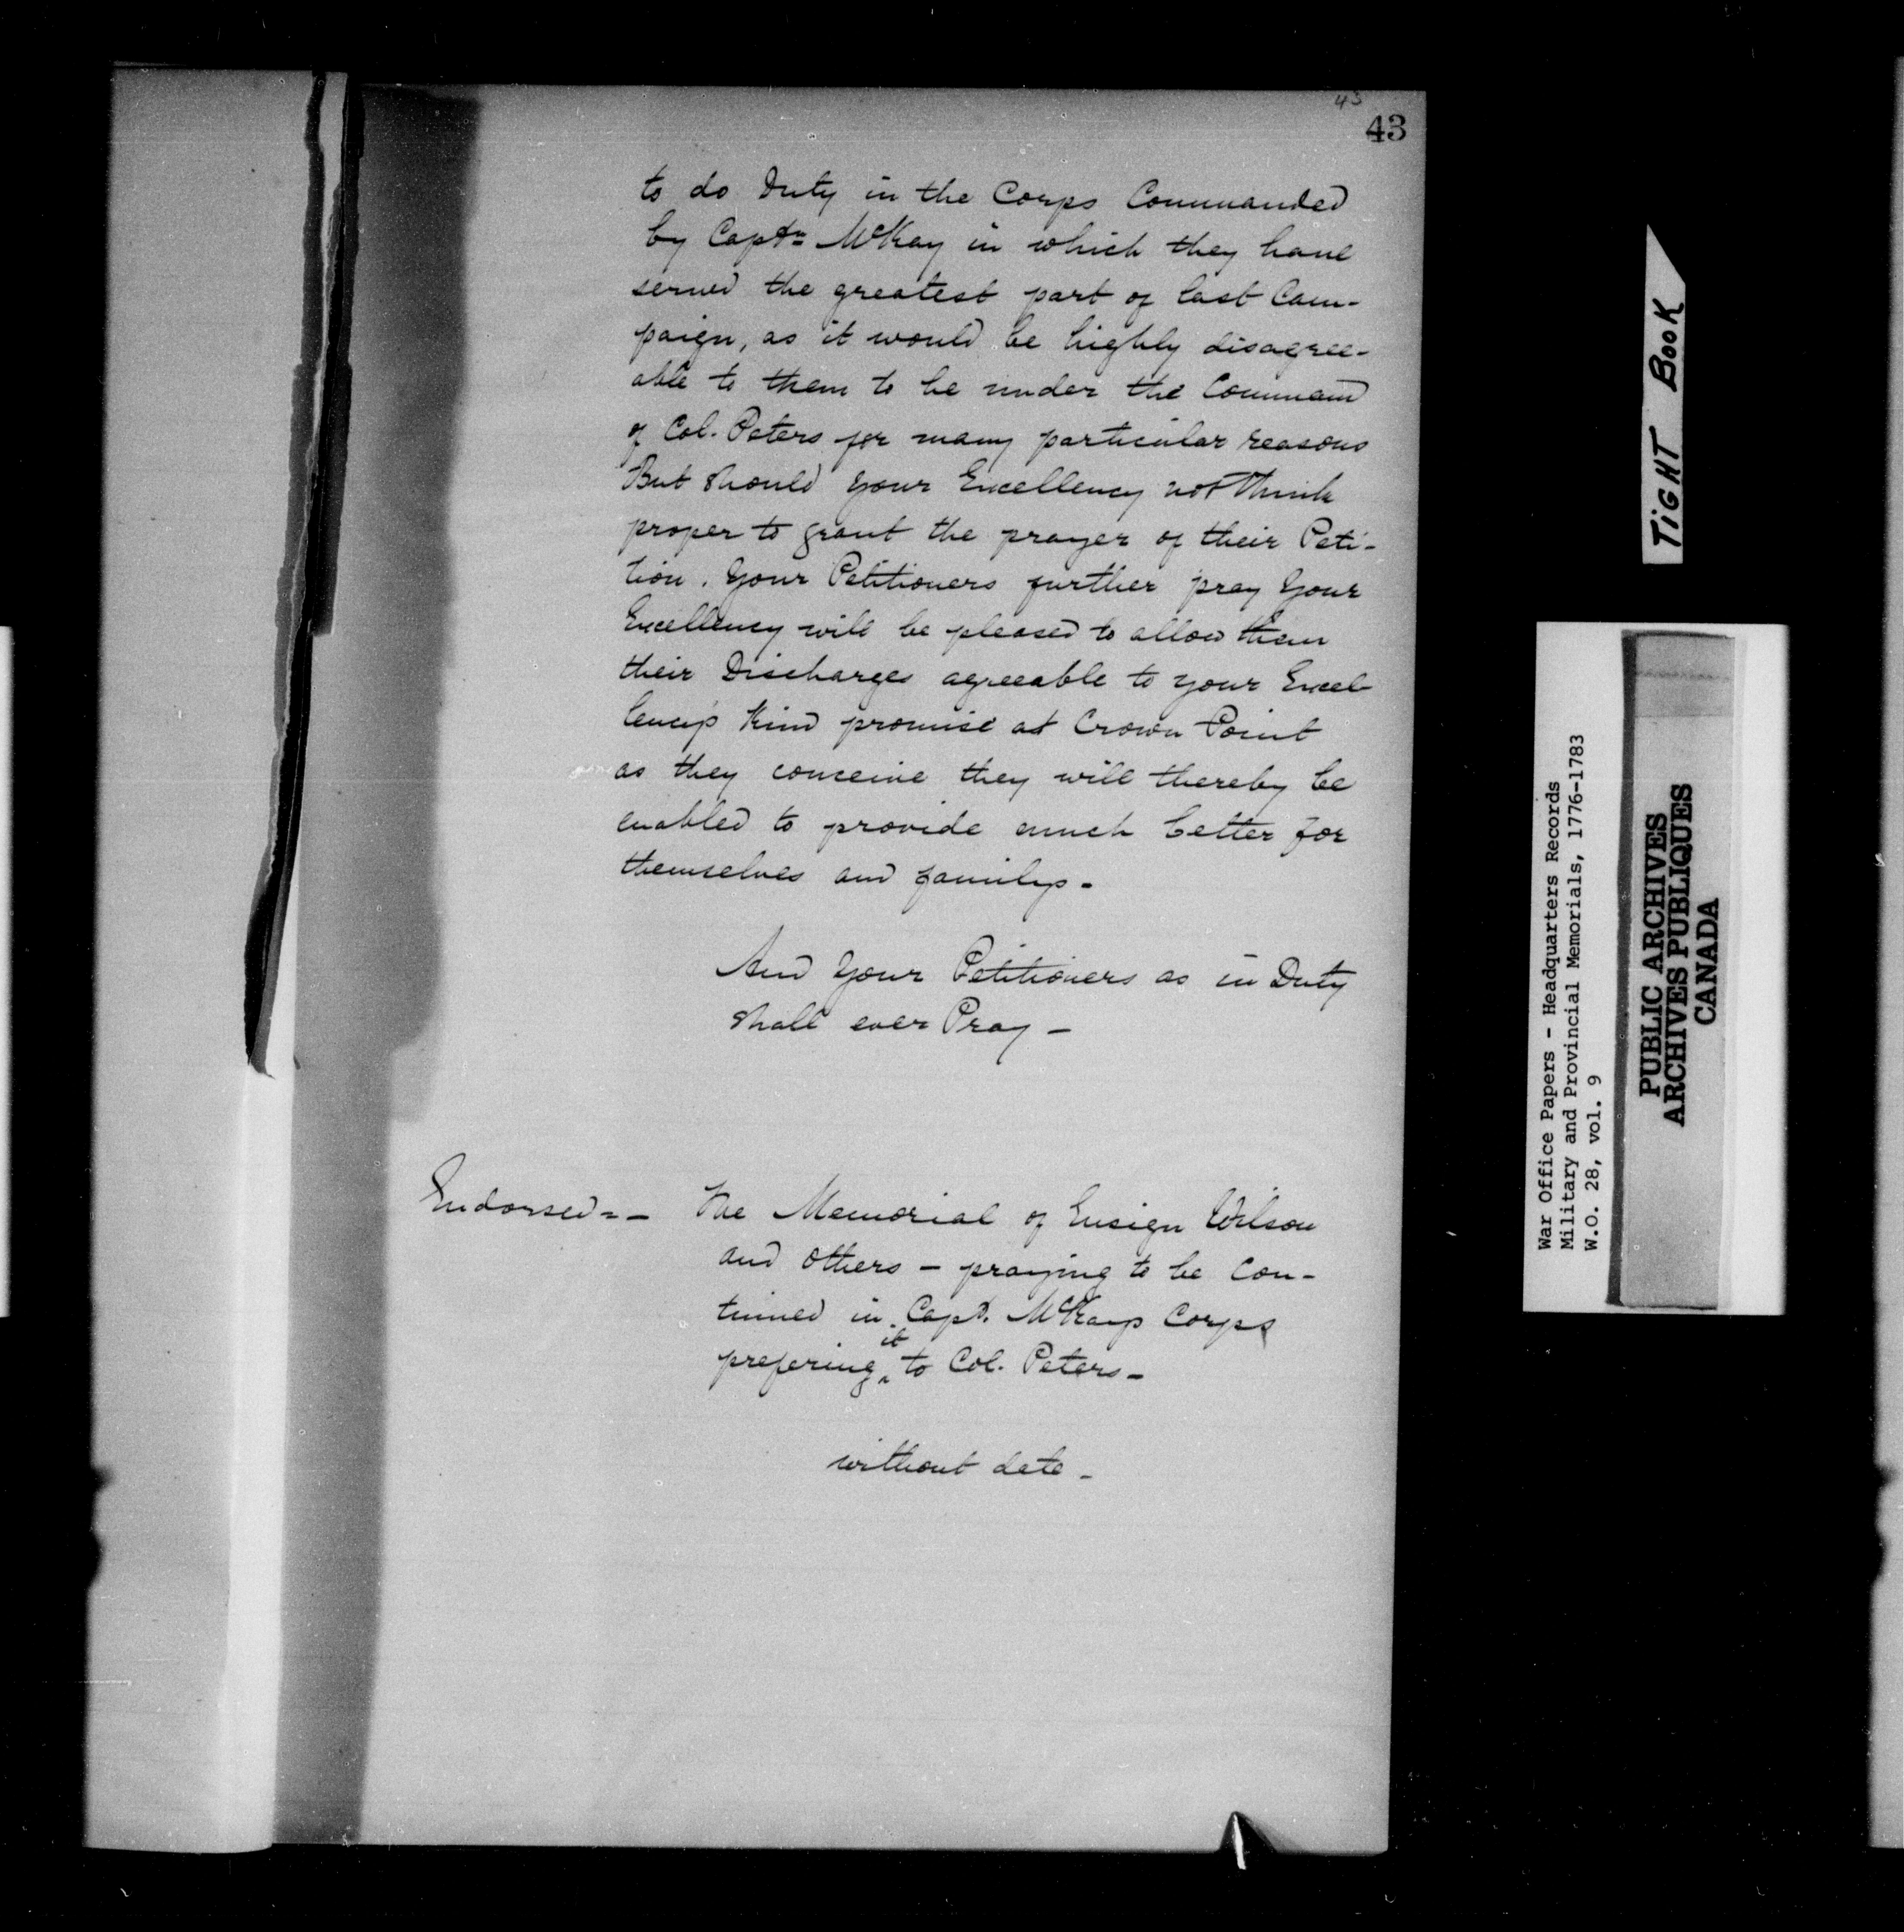 43
43
to do Duty in the Corps Commanded
by Captn McKay in which they have
served the greatest part of last Cam-
paign, as it would be highly disagree-
able to them to be under the Command
of Col. Peters for many particular reasons
But should your Excellency not think
proper to grant the prayer of their Peti-
tion. Your Petitioners further pray Your
Excellency will be pleased to allow them
their Discharges agreeable to your Excel-
lency's kind promise at Crown Point
as they conceive they will thereby be
enabled to provide much better for
themselves and familys-
And Your Petitioners as in Duty
shall ever Pray-
Endorsed=- The Memorial of Ensign Wilson
and others - praying to be Con-
tinued in Capt. McKays Corps
prefering it to Col. Peters-
without date-
TIGHT BOOK
War Office Papers - Headquarters Records
Military and Provincial Memorials, 1776-1783
W.O. 28, vol. 9
PUBLIC ARCHIVES
ARCHIVES PUBLIQUES
CANADA